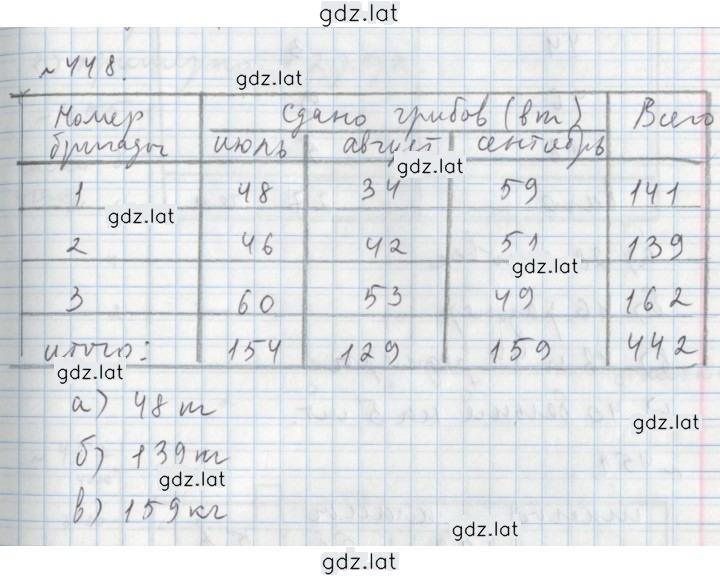 gdz.lat
№448.
gdz.lat
Номер бригады Сдано грибов (в т) Всего
июль август сентябрь
gdz.lat
1 48 34 59 141
gdz.lat
2 46 42 51 139
gdz.lat
3 60 53 49 162
итого: 154 129 159 442
gdz.lat
а) 48 т
gdz.lat
б) 139 т
gdz.lat
в) 159 кг
gdz.lat
gdz.lat